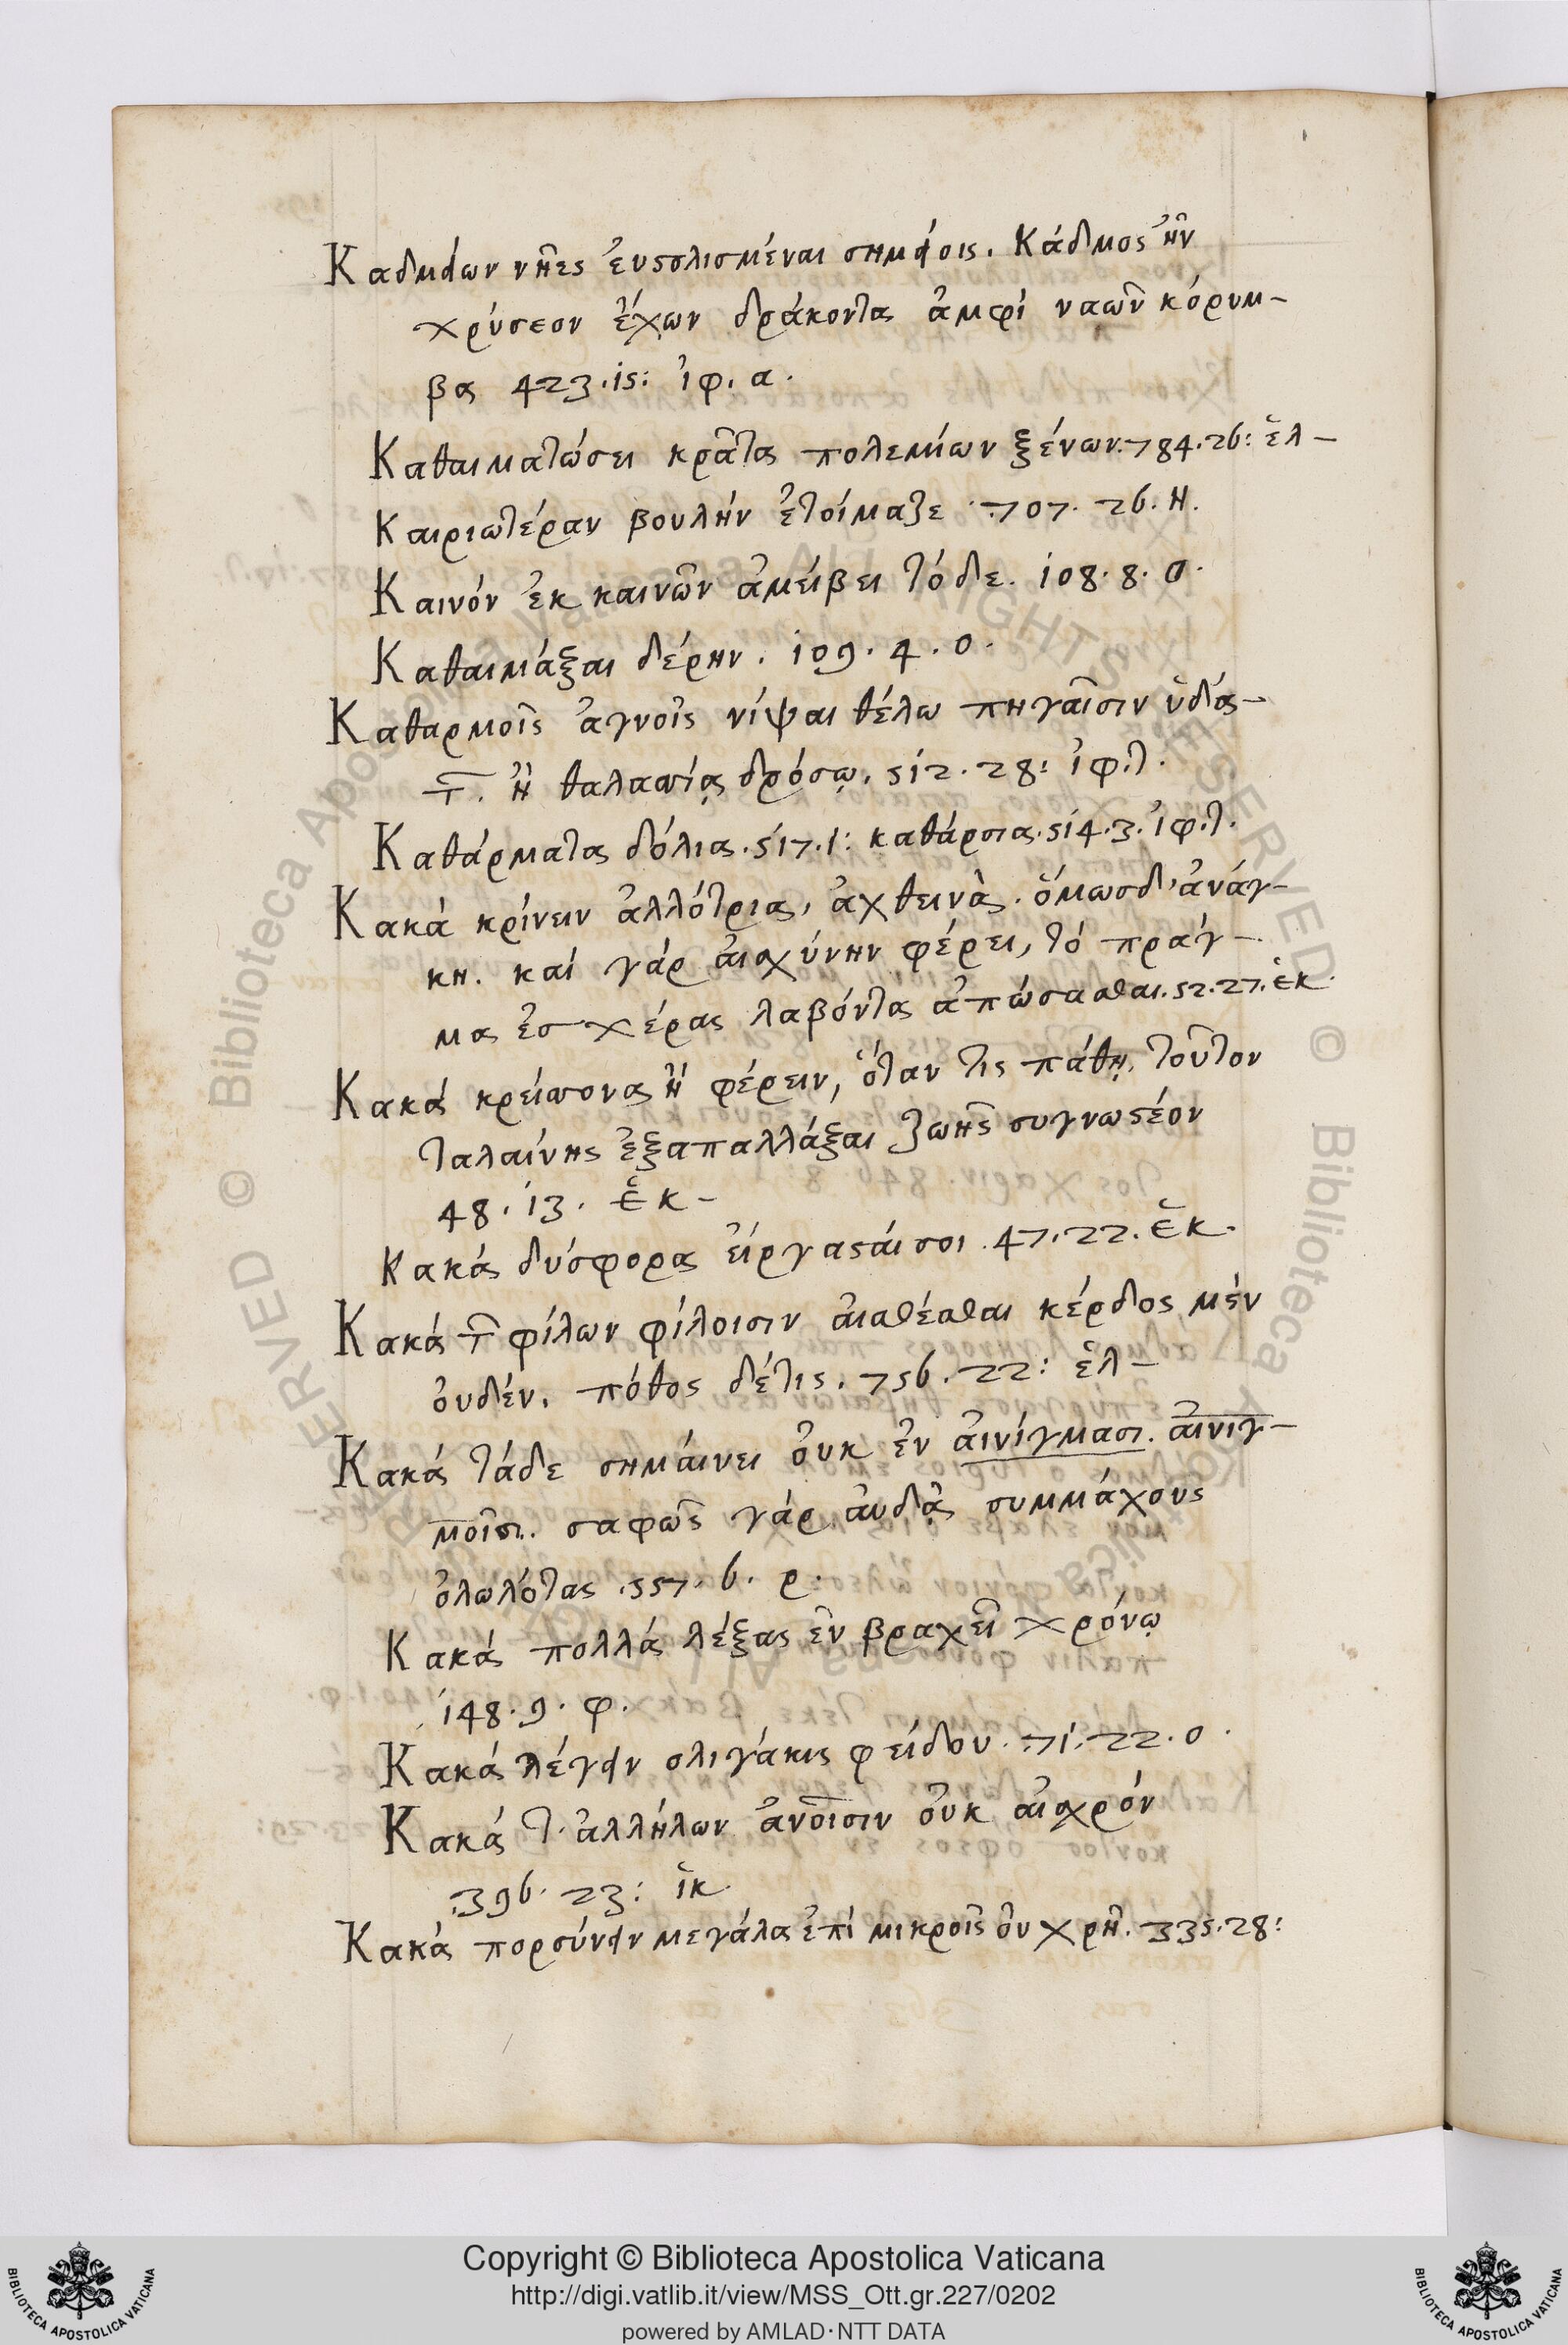 Καδμείων νῆες εὐστολισμέναι σημείοις. Κάδμος ἦν
χρύσεον ἔχων δράκοντα ἀμφὶ ναῶν κόρυμ-
βα 423.15: ἰφ. α.
Καθαιματώσει κρᾶτα πολεμίων ξένων. 784.26: ἑλ-
Καιριωτέραν βουλήν ἐτοίμαζε 707. 26. Η.
Καινόν ἐκ καινῶν ἀμείβει τόδε. 108.8.ο.
Καθαιμάξαι δέρην. 109.4.ο.
Καθαρμοῖς ἁγνοῖς νίψαι θέλω πηγαῖσιν ὑδά-
τ. ἢ θαλασσίᾳ δρόσῳ. 512.28: ἰφ.τ.
Καθάρματα δόλια. 517.1: καθάρσια. 514.3. ἰφ.τ.
Κακά κρίνειν ἀλλότρια, ἀχθεινὰ. ὅμωσδ' ἀνάγ-
κη. καί γάρ αἰσχύνην φέρει, τό πράγ-
μα ἐσ χέρας λαβόντα ἀπώσασθαι. 52.27. ἑκ.
Κακά κρείσσονα ἢ φέρειν, ὅταν τις πάθῃ, τοῦτον
ταλαίνης ἐξαπαλλάξαι ζωῆς συγνωστέον
48.13. ἑκ-
Κακά δύσφορα εἰργασταί σοι. 47.22. ἑκ.
Κακά τ φίλων φίλοισιν αἰσθέσθαι κέρδος μὲν
οὐδέν. πόθος δέ τις. 756.22: ἑλ-
Κακά τάδε σημαίνει οὐκ ἐν αἰνίγμασι. αἰνιγ-
μοῖσι. σαφῶς γάρ αὐδᾷ συμμάχους
ὀλωλότας. 557. 6. ρ.
Κακά πολλά λέξας ἐν βραχεῖ χρόνῳ
148.9. φ.
Κακά λέγειν ολιγάκις φείδου. 71.22.ο.
Κακά τ. ἀλλήλων ἀνοῖσιν οὐκ αἰσχρόν
396. 23: ἱκ.
Κακά πορσύνειν μεγάλα ἐπί μικροῖς οὐ χρή. 335.28:
Copyright © Biblioteca Apostolica Vaticana
http://digi.vatlib.it/view/MSS_Ott.gr.227/0202
powered by AMLAD·NTT DATA